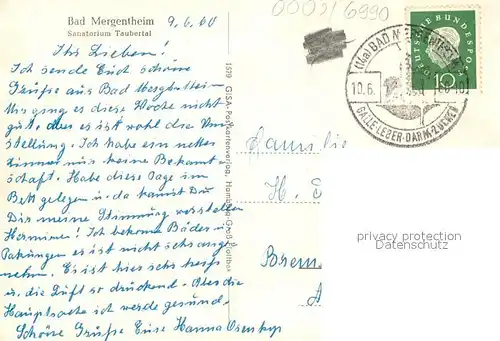 Bad Mergentheim
Sanatorium Taubertal
9.6.60
Ihr Lieben!
Ich sende Euch schöne
Grüße aus Bad Mergentheim
Uns ging es diese Woche nicht
gut, aber es ist wohl die Um
stellung. Ich habe ein nettes
Zimmer nur keine Bekannt
schaft. Habe diese Tage im
Bett gelegen u. da kannst Du
Dir meine Stimmung vorstellen
Hermine! Ich bekomme Bäder u.
Pakungen es ist nicht sehr ange
nehm. Es ist hier sehr heiß
u. die Luft so drückend. Aber die
Hauptsache ich werde gesund.
Schöne Grüße Eure Hanna
1519 GISA-Postkartenverlag, Hamburg-Groß Flottbek
0003/6990
(14a) BAD MERGENTHEIM
10.6.
GALLE-LEBER-DARM-ZUCKER
DEUTSCHE BUNDESPOST
10
Familie
H.
Brem
privacy protection
Datenschutz